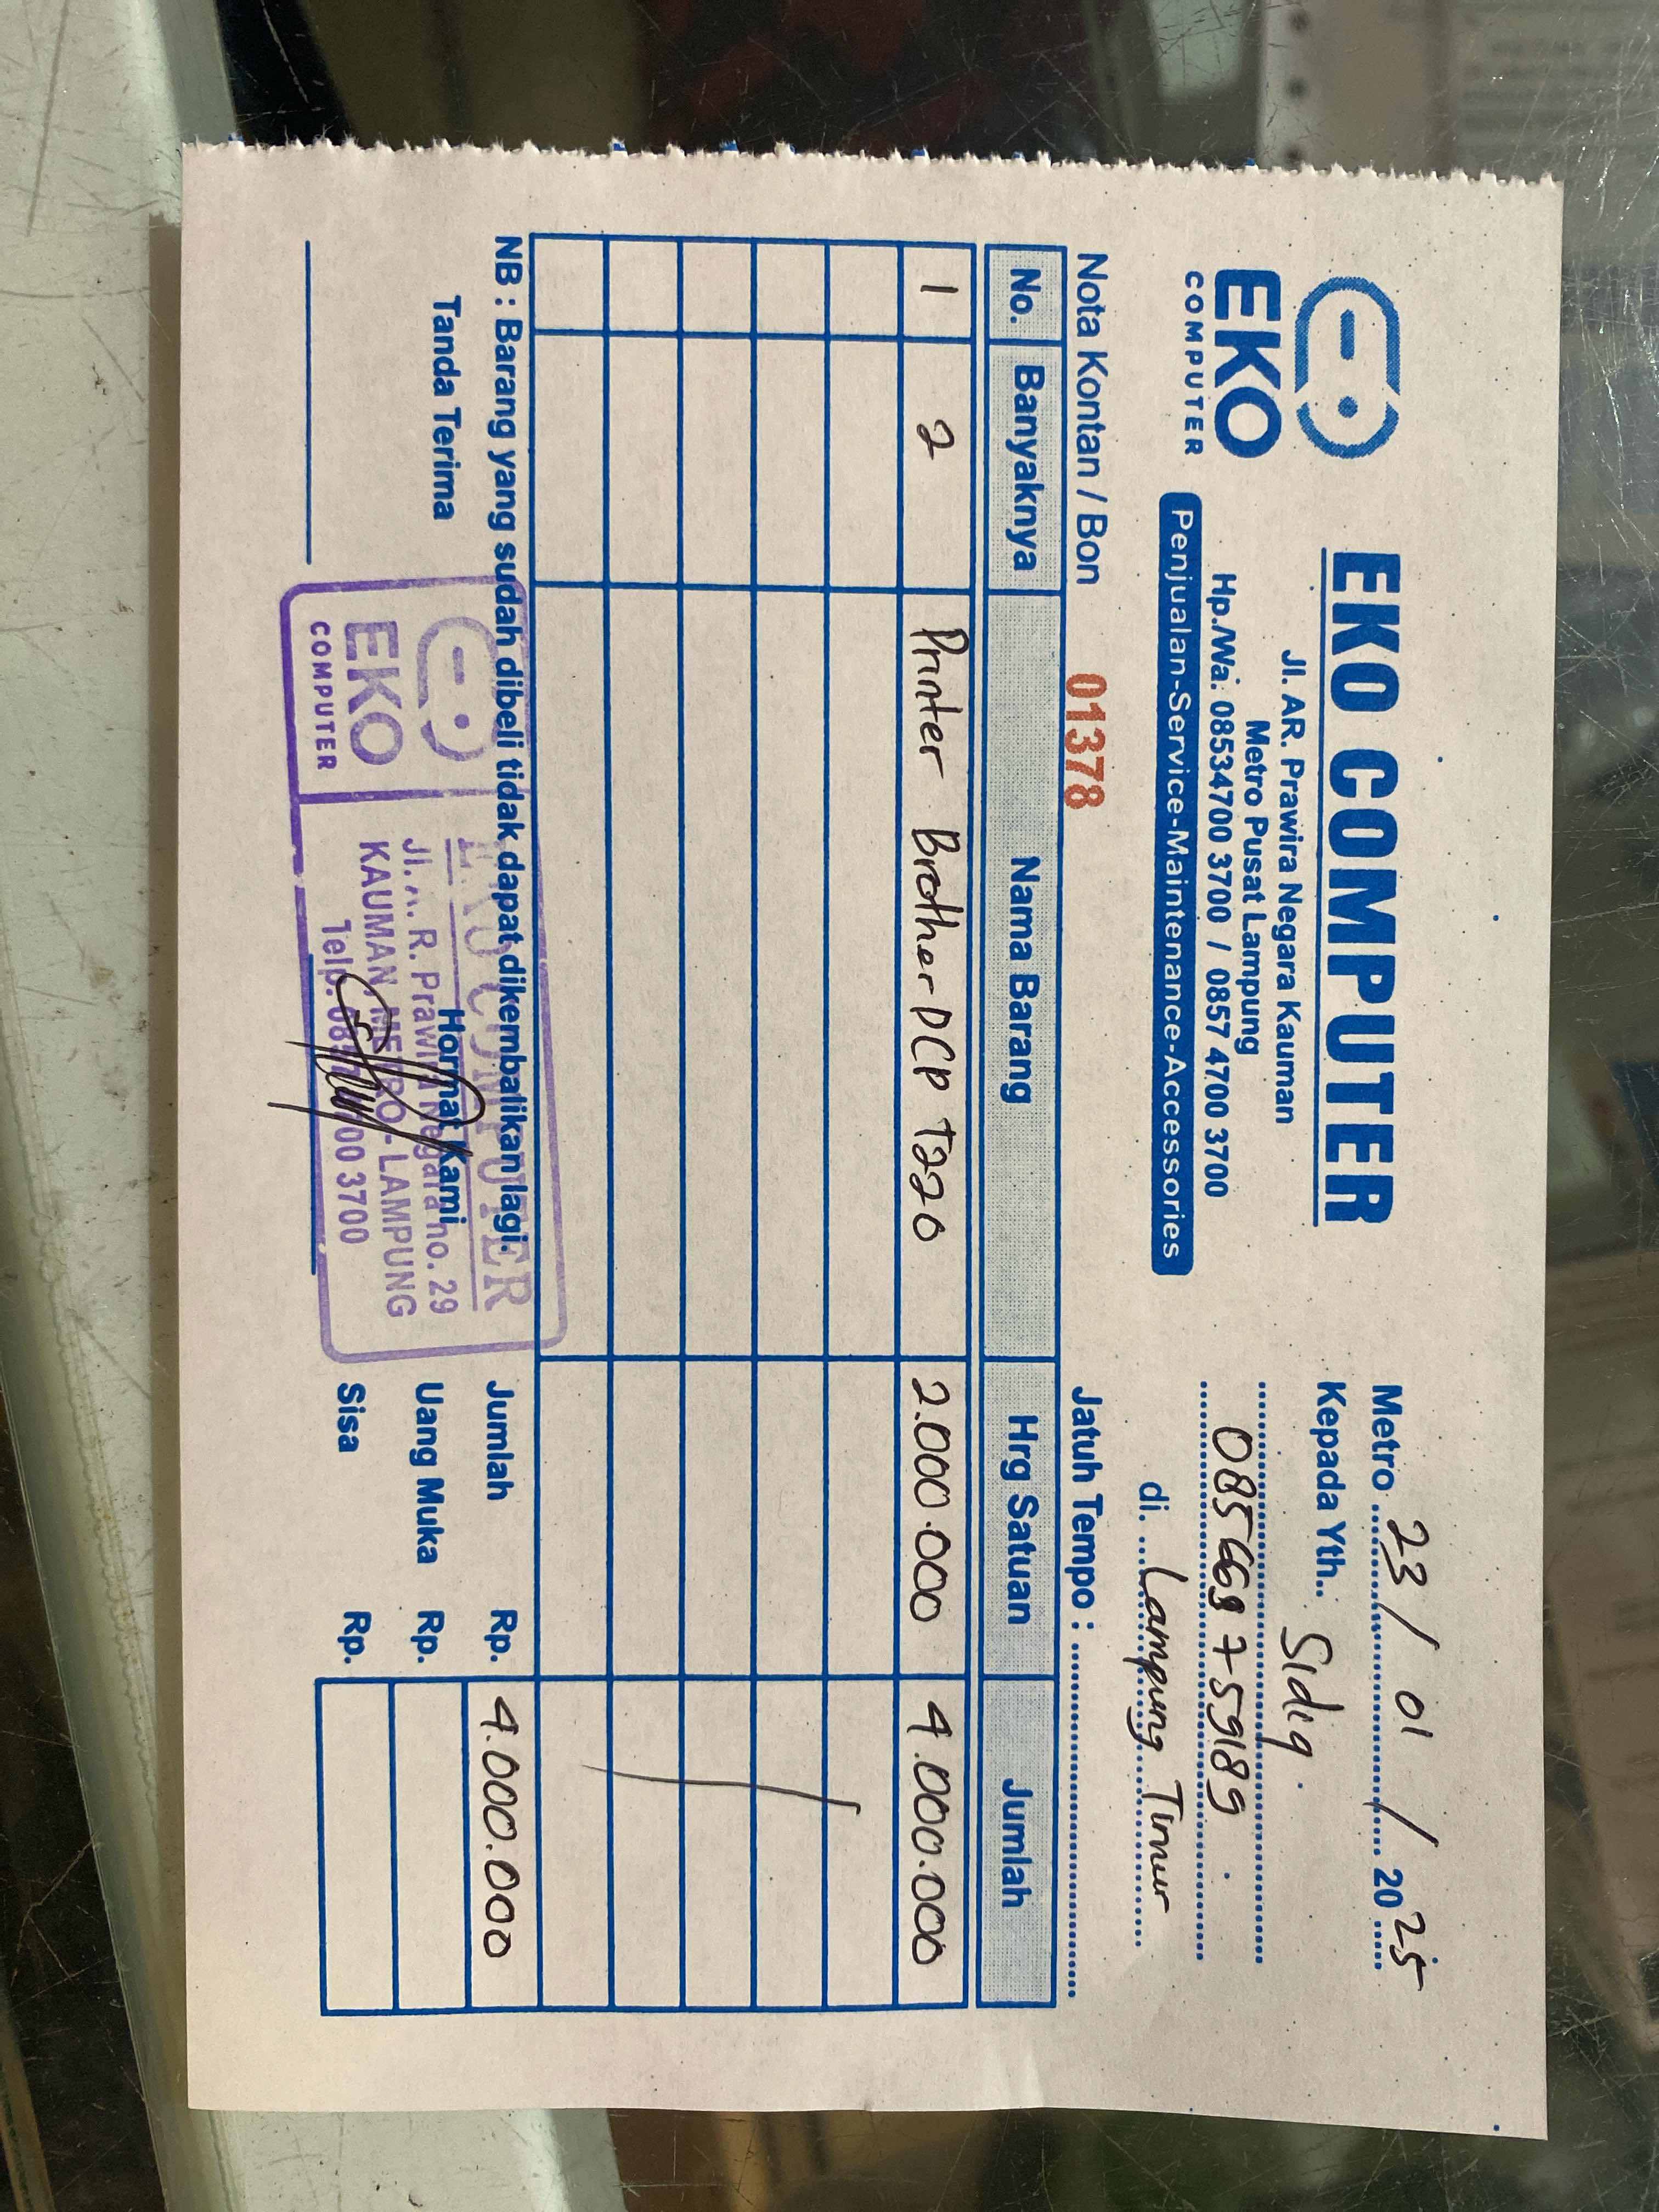 EKO
COMPUTER
EKO COMPUTER
Jl. AR. Prawira Negara Kauman
Metro Pusat Lampung
Hp./Wa. 08534700 3700 / 0857 4700 3700
Penjualan-Service-Maintenance-Accessories
Metro 23 / 01 / 2025
Kepada Yth.. Sidiq
di. Lampung Timur
Nota Kontan / Bon 01378 Jatuh Tempo :
No. Banyaknya Nama Barang Hrg Satuan Jumlah
1 2 Printer Brother DCP T220 2.000.000 4.000.000
NB : Barang yang sudah dibeli tidak dapat dikembalikan lagi.
Jumlah Rp. 4.000.000
Uang Muka Rp.
Sisa Rp.
Tanda Terima Hormat Kami
EKO
COMPUTER
EKO COMPUTER
Jl. A. R. Prawira Negara no. 29
KAUMAN METRO - LAMPUNG